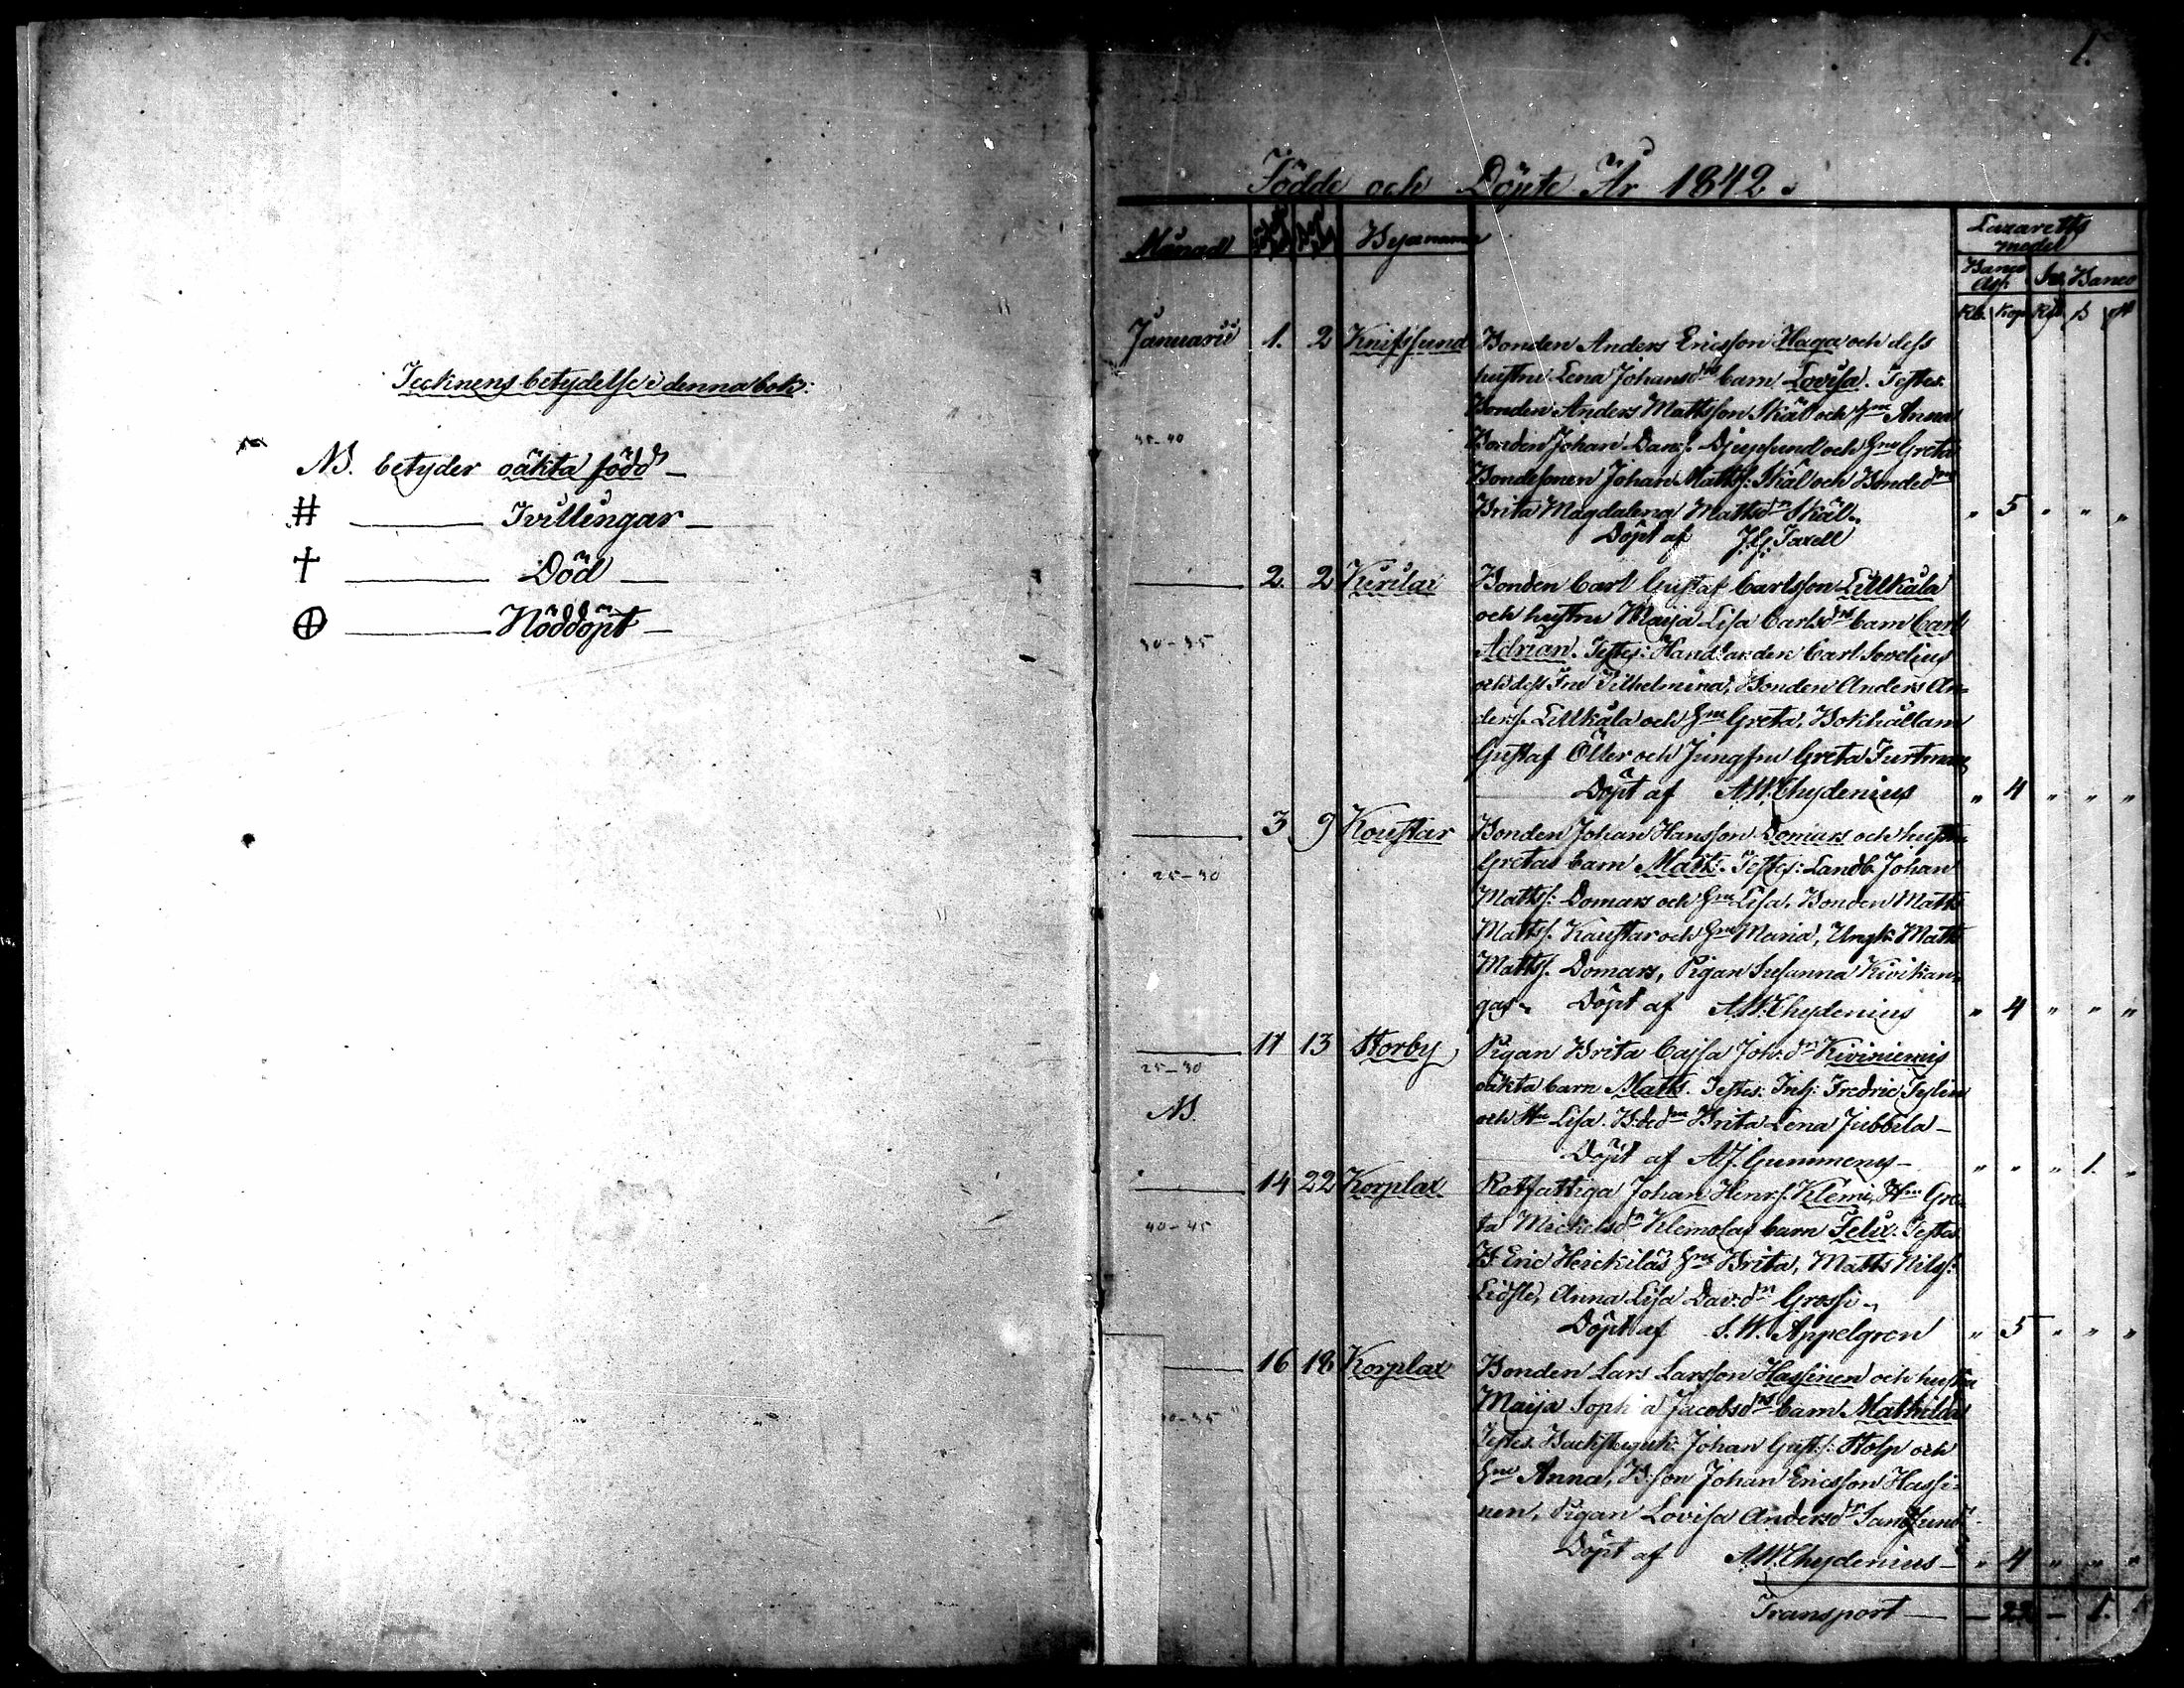 Tecknens betydelse i denna bok:
NB. betyder oäkta född —
# ——— Tvillingar —
† ——— Död —
⊕ ——— Nöddöpt —
1.
Födde och Döpte År 1842.
Månad Byanamn Lazaretts
medel
Banco Banco
Rb. Kop
Januarii 1. 2 Knifssund Bonden Anders Ericsson Haga och dess
hustru Lena Johansdrs barn Lovisa. Testes:
Bonden Anders Mattsson Skäl och Hru Anna
35-40 Bonden Johan Dans. Djupsund och Hru Greta
Bondesonen Johan Matts: Skäl och Bondedn
Brita Magdalena Mattsdr Skäl. " 5 " " "
Döpt af J.G. Taxell
——— 2 2 Kirilax Bonden Carl Gustaf Carlsson Lillkåla
och hustru Maija Lisa Carlsdrs barn Carl
30-35 Adrian. Testes: Handlanden Carl Sovelius
och dess Fru Vilhelmina, Bonden Anders An-
derss. Lillkåla och Hru Greta, Bokhållaren
Gustaf Öller och Jungfru Greta
Döpt af A.W. Chydenius " 4 " " "
——— 3 9 Koustar Bonden Johan Hansson Domars och hustru
25-30 Gretas barn Matts. Testes: Landb. Johan
Matts: Domars och Hru Lisa, Bonden Matts
Matts. Kaustar och Hru Maria, Ungk. Matts
Matts. Domars, Pigan Susanna Kivikan-
gas. Döpt af A.W. Chydenius " 4 " " "
——— 11 13 Storby Pigan Brita Cajsa Joh.dr Kiviniemis
25-30 oäkta barn Matts. Testes: Inh: Fredric
NB. och Hru Lisa. B:dedn Brita Lena Jubbila —
Döpt af A.J. Gummerus — " " " 1. "
——— 14 22 Korplax Rotfattiga Johan Henrs. Klemi, Hru Gre-
40-45 ta Mickelsdr Klemolas barn Felix. Testes
B. Eric Heickilä, Hru Brita, Matts Nilss:
Anna Lisa Dav:dr Grossi.
Döpt af S.W. Appelgren " 5 " " "
——— 16 18 Korplax Bonden Lars Larsson Hassinen och hustru
Maija Sophia Jacobsdrs barn Mathilda
Testes. Johan Gust:s: Stolp och
Hru Anna, B:son Johan Ericsson Hassi-
nen, Pigan Lovisa Andersdr Sandsund.
Döpt af A.W. Chydenius — " 4 " " "
Transport — — 22 — 1.